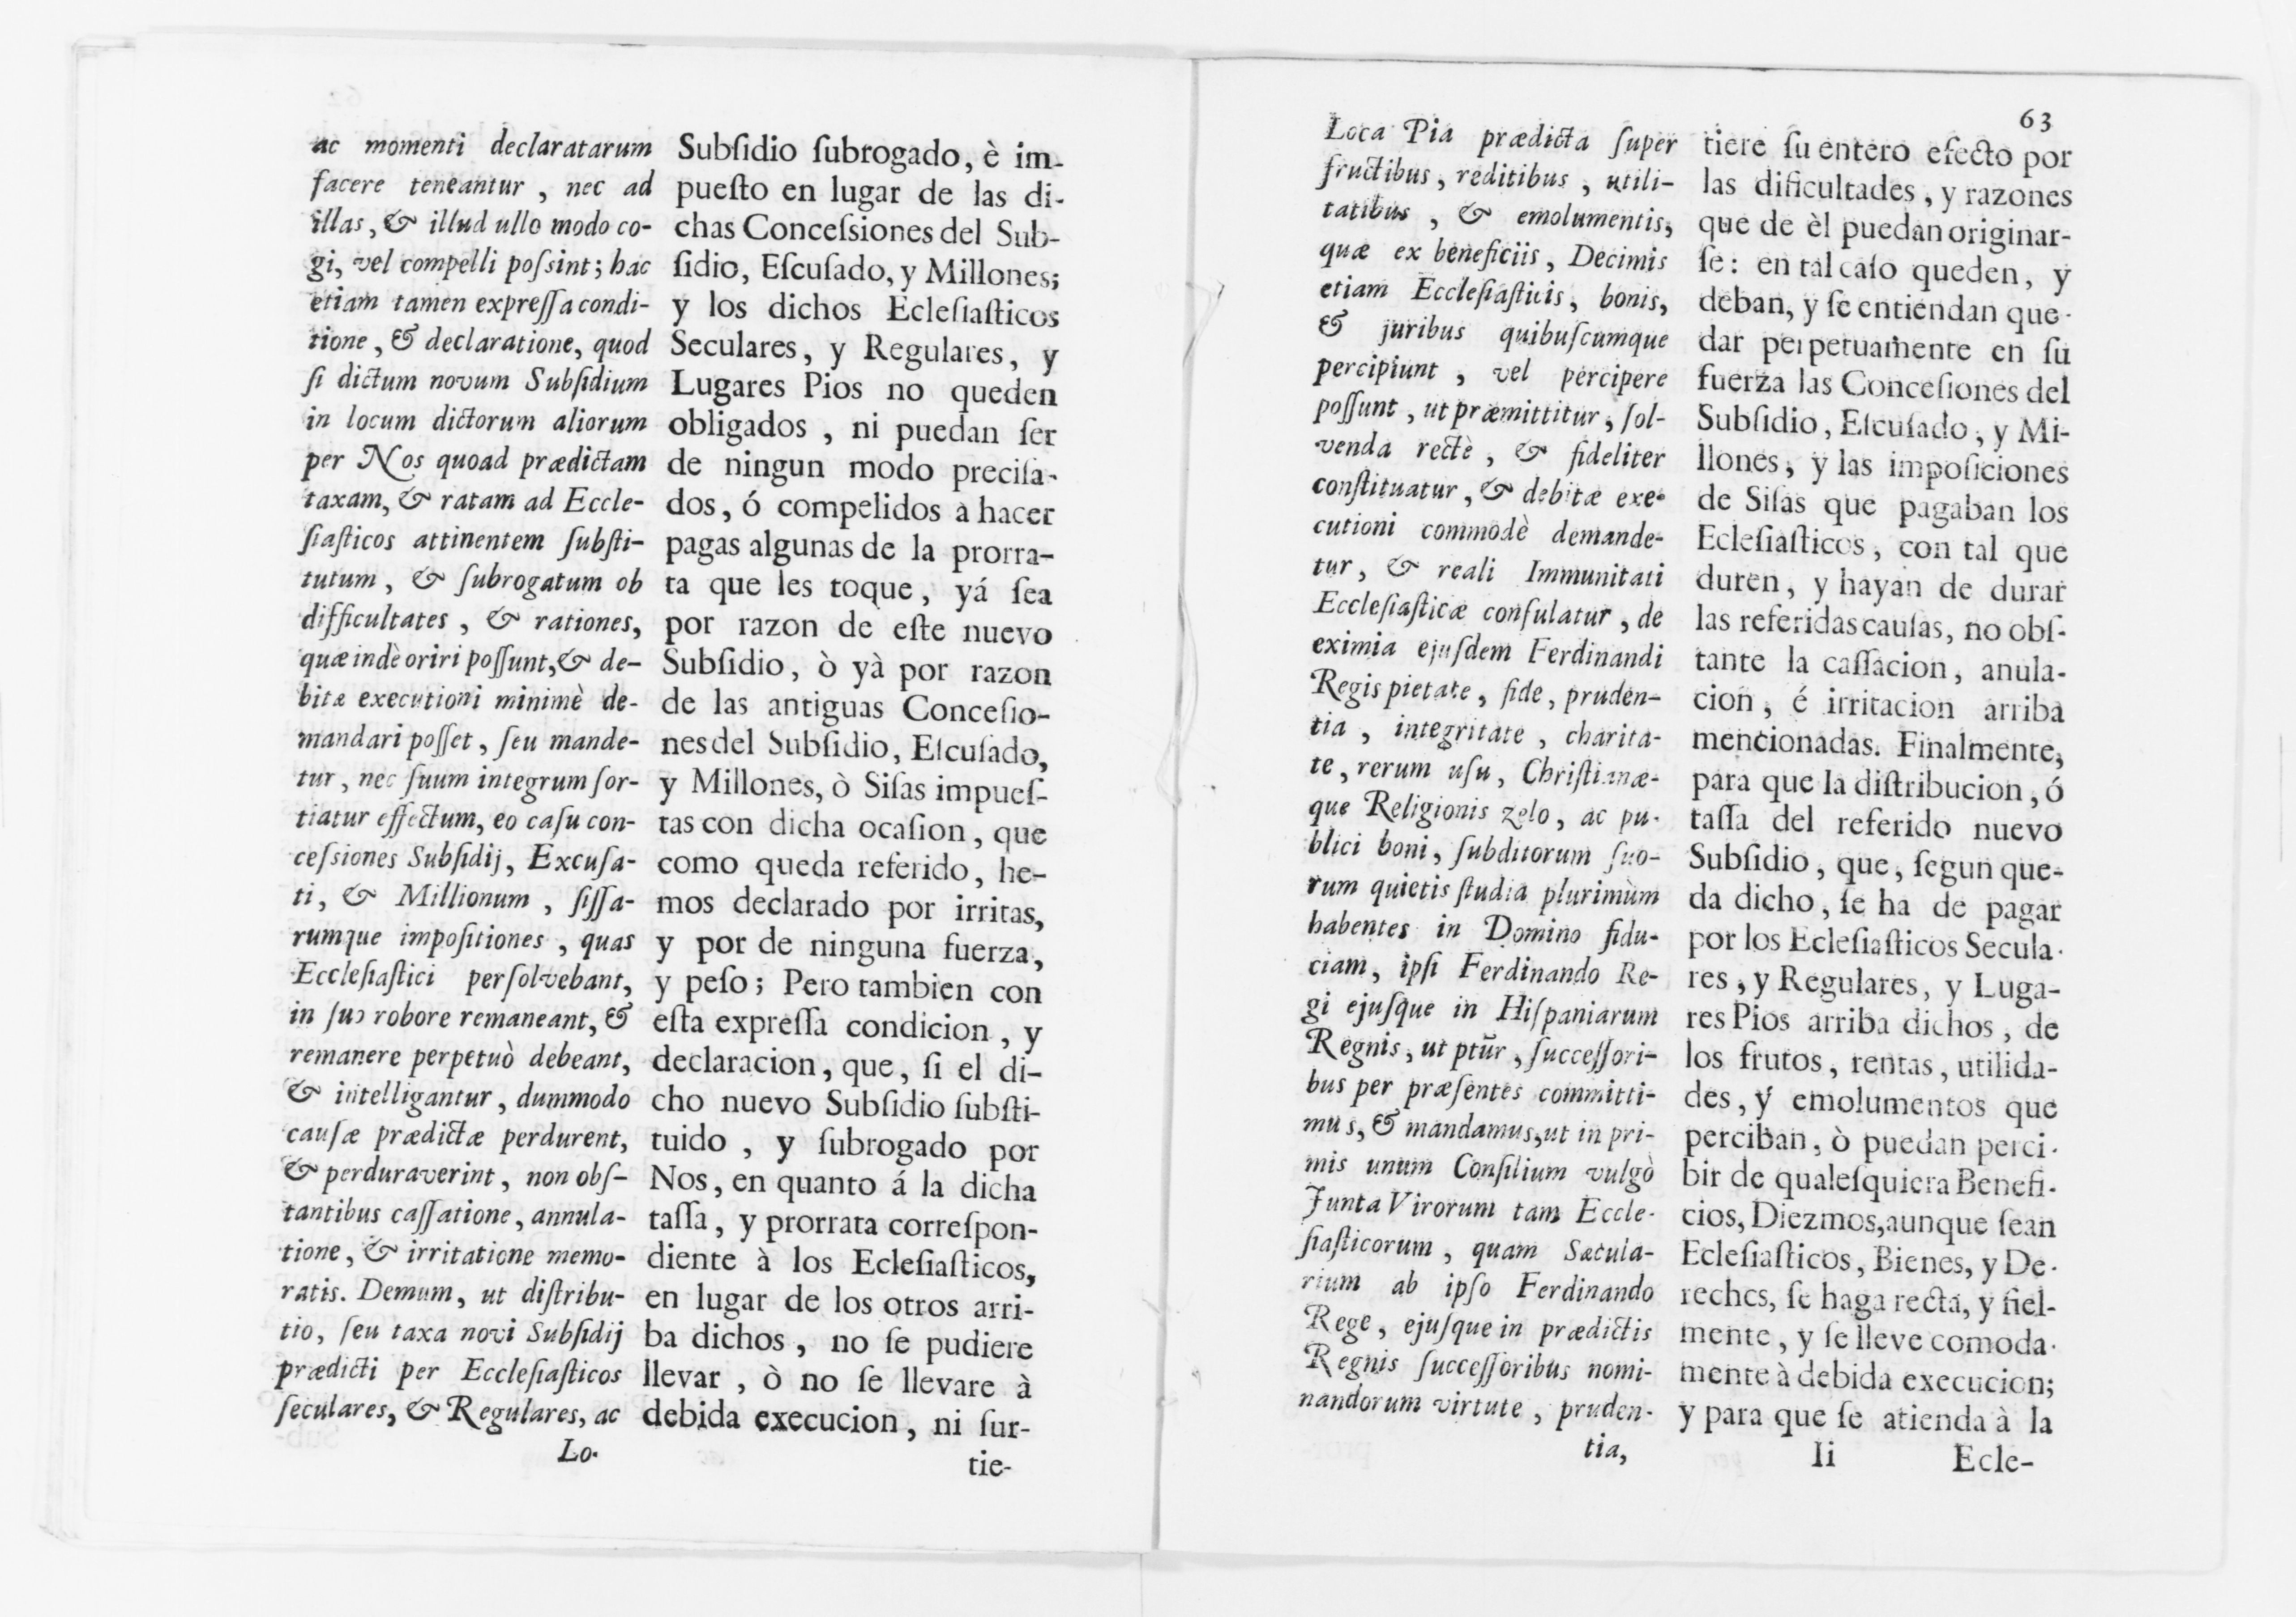 ac momenti declaratarum
facere teneantur, nec ad
illas, & illud ullo modo co-
gi, vel compelli poſsint; hac
etiam tamen expreſſa condi-
tione, & declaratione, quod
ſi dictum novum Subſidium
in locum dictorum aliorum
per Nos quoad prædictam
taxam, & ratam ad Eccle-
ſiaſticos attinentem ſubſti-
tutum, & ſubrogatum ob
difficultates, & rationes,
quæ indè oriri poſſunt, & de-
bitæ executioni minimè de-
mandari poſſet, ſeu mande-
tur, nec ſuum integrum ſor-
tiatur effectum, eo caſu con-
ceſsiones Subſidij, Excuſa-
ti, & Millionum, ſiſſa-
rumque impoſitiones, quas
Eccleſiaſtici perſolvebant,
in ſuo robore remaneant, &
remanere perpetuò debeant,
& intelligantur, dummodo
cauſæ prædictæ perdurent,
& perduraverint, non obſ-
tantibus caſſatione, annula-
tione, & irritatione memo-
ratis. Demum, ut diſtribu-
tio, ſeu taxa novi Subſidij
prædicti per Eccleſiaſticos
ſeculares, & Regulares, ac
Lo-
Subſidio ſubrogado, è im-
pueſto en lugar de las di-
chas Conceſsiones del Sub-
ſidio, Eſcuſado, y Millones;
y los dichos Ecleſiaſticos
Seculares, y Regulares, y
Lugares Pios no queden
obligados, ni puedan ſer
de ningun modo preciſa-
dos, ó compelidos à hacer
pagas algunas de la prorra-
ta que les toque, yá ſea
por razon de eſte nuevo
Subſidio, ò yà por razon
de las antiguas Conceſio-
nes del Subſidio, Eſcuſado,
y Millones, ò Siſas impueſ-
tas con dicha ocaſion, que
como queda referido, he-
mos declarado por irritas,
y por de ninguna fuerza,
y peſo; Pero tambien con
eſta expreſſa condicion, y
declaracion, que, ſi el di-
cho nuevo Subſidio ſubſti-
tuido, y ſubrogado por
Nos, en quanto á la dicha
taſſa, y prorrata correſpon-
diente à los Ecleſiaſticos,
en lugar de los otros arri-
ba dichos, no ſe pudiere
llevar, ò no ſe llevare à
debida execucion, ni ſur-
tie-
63
Loca Pia prædicta ſuper
fructibus, reditibus, utili-
tatibus, & emolumentis,
quæ ex beneficiis, Decimis
etiam Eccleſiaſticis, bonis,
& juribus quibuſcumque
percipiunt, vel percipere
poſſunt, ut præmittitur, ſol-
venda rectè, & fideliter
conſtituatur, & debitæ exe-
cutioni commodè demande-
tur, & reali Immunitati
Eccleſiaſticæ conſulatur, de
eximia ejuſdem Ferdinandi
Regis pietate, fide, pruden-
tia, integritate, charita-
te, rerum uſu, Chriſtianæ-
que Religionis zelo, ac pu-
blici boni, ſubditorum ſuo-
rum quietis ſtudia plurimùm
habentes in Domino fidu-
ciam, ipſi Ferdinando Re-
gi ejuſque in Hiſpaniarum
Regnis, ut ptŭr, ſucceſſori-
bus per præſentes committi-
mus, & mandamus, ut in pri-
mis unum Conſilium vulgò
Junta Virorum tam Eccle-
ſiaſticorum, quam Sæcula-
rium ab ipſo Ferdinando
Rege, ejuſque in prædictis
Regnis ſucceſſoribus nomi-
nandorum virtute, pruden-
tia,
tiere ſu entero efecto por
las dificultades, y razones
que de èl puedan originar-
ſe: en tal caſo queden, y
deban, y ſe entiendan que-
dar perpetuamente en ſu
fuerza las Conceſiones del
Subſidio, Eſcuſado, y Mi-
llones, y las impoſiciones
de Siſas que pagaban los
Ecleſiaſticos, con tal que
duren, y hayan de durar
las referidas cauſas, no obſ-
tante la caſſacion, anula-
cion, é irritacion arriba
mencionadas. Finalmente,
para que la diſtribucion, ó
taſſa del referido nuevo
Subſidio, que, ſegun que-
da dicho, ſe ha de pagar
por los Ecleſiaſticos Secula-
res, y Regulares, y Luga-
res Pios arriba dichos, de
los frutos, rentas, utilida-
des, y emolumentos que
perciban, ò puedan perci-
bir de qualeſquiera Benefi-
cios, Diezmos, aunque ſean
Ecleſiaſticos, Bienes, y De-
rechos, ſe haga recta, y fiel-
mente, y ſe lleve comoda-
mente à debida execucion;
y para que ſe atienda à la
Ii Ecle-